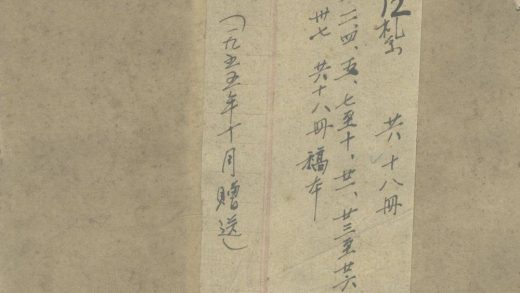 札 共十八冊
二、四、五、七至十、廿一、廿三至廿六
卅七 共十八冊 稿本
(一九五五年十月贈送)